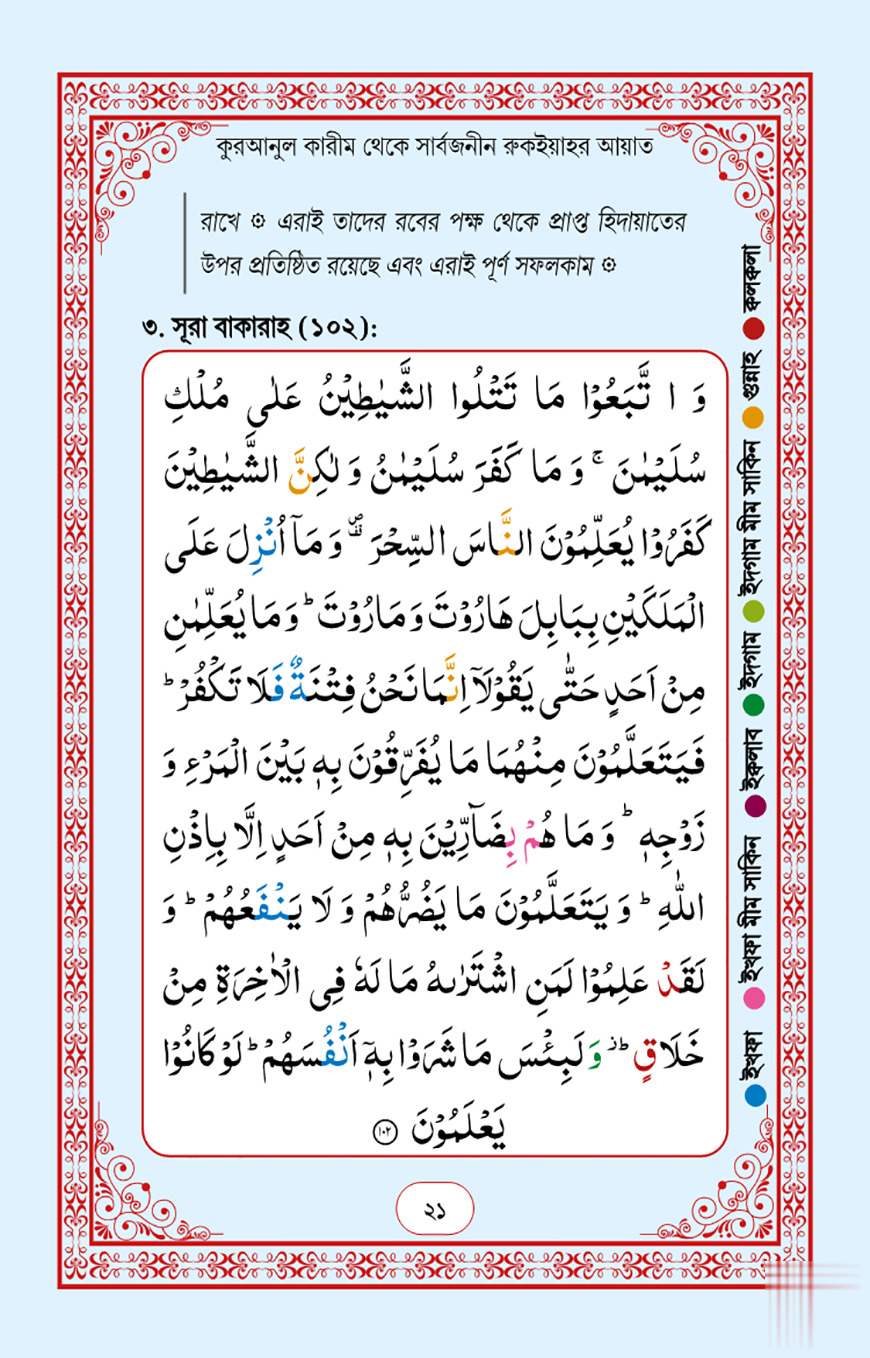 কুরআনুল কারীম থেকে সার্বজনীন রুকইয়াহর আয়াত
রাখে ۞ এরাই তাদের রবের পক্ষ থেকে প্রাপ্ত হিদায়াতের
উপর প্রতিষ্ঠিত রয়েছে এবং এরাই পূর্ণ সফলকাম ۞
৩. সূরা বাকারাহ (১০২):
وَ ا تَّبَعُوۡا مَا تَتۡلُوا الشَّيٰطِيۡنُ عَلٰى مُلۡكِ
سُلَيۡمٰنَ ۚ وَ مَا كَفَرَ سُلَيۡمٰنُ وَ لٰكِنَّ الشَّيٰطِيۡنَ
كَفَرُوۡا يُعَلِّمُوۡنَ النَّاسَ السِّحۡرَ ۗ وَ مَاۤ اُنۡزِلَ عَلَى
الۡمَلَكَيۡنِ بِبَابِلَ هَارُوۡتَ وَ مَارُوۡتَ ؕ وَ مَا يُعَلِّمٰنِ
مِنۡ اَحَدٍ حَتّٰى يَقُوۡلَاۤ اِنَّمَا نَحۡنُ فِتۡنَةٌ فَلَا تَكۡفُرۡ ؕ
فَيَتَعَلَّمُوۡنَ مِنۡهُمَا مَا يُفَرِّقُوۡنَ بِهٖ بَيۡنَ الۡمَرۡءِ وَ
زَوۡجِهٖ ؕ وَ مَا هُمۡ بِضَآرِّيۡنَ بِهٖ مِنۡ اَحَدٍ اِلَّا بِاِذۡنِ
اللّٰهِ ؕ وَ يَتَعَلَّمُوۡنَ مَا يَضُرُّهُمۡ وَ لَا يَنۡفَعُهُمۡ ؕ وَ
لَقَدۡ عَلِمُوۡا لَمَنِ اشۡتَرٰىهُ مَا لَهٗ فِى الۡاٰخِرَةِ مِنۡ
خَلَاقٍ ؕ۟ وَ لَبِئۡسَ مَا شَرَوۡا بِهٖۤ اَنۡفُسَهُمۡ ؕ لَوۡ كَانُوۡا
يَعۡلَمُوۡنَ ﴿۱۰۲﴾
ইখফা
ইখফা মীম সাকিন
ইকলাব
ইদগাম
ইদগাম মীম সাকিন
গুন্নাহ
ক্বলক্বলা
২১